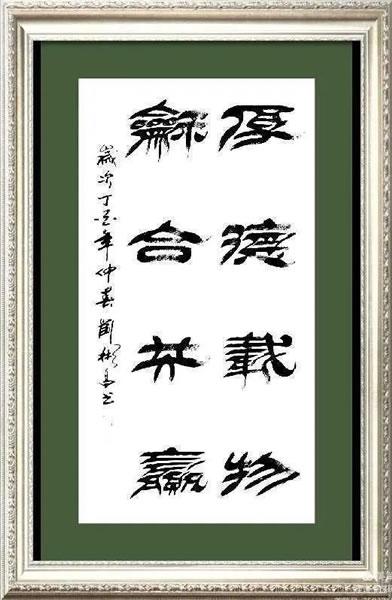 厚德載物
龢合共贏
歲次丁亥年仲春